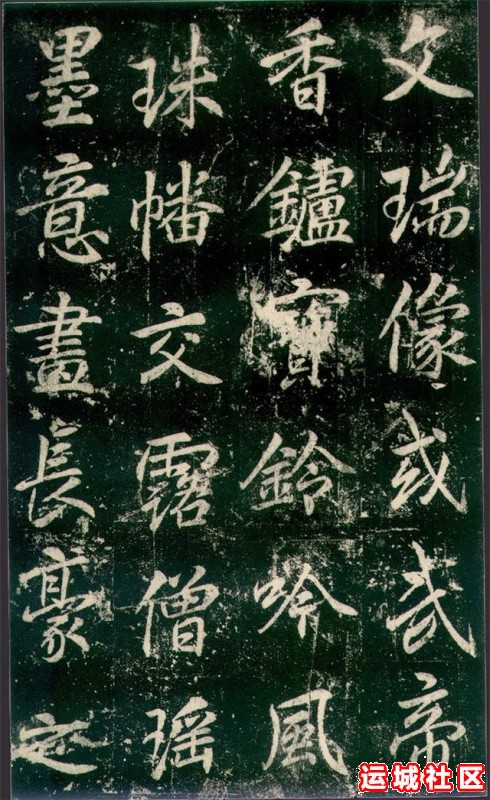 文瑞像或武帝
香鑪寶鈴吟風
珠幡交露僧瑶
墨意畫長豪之
运城社区